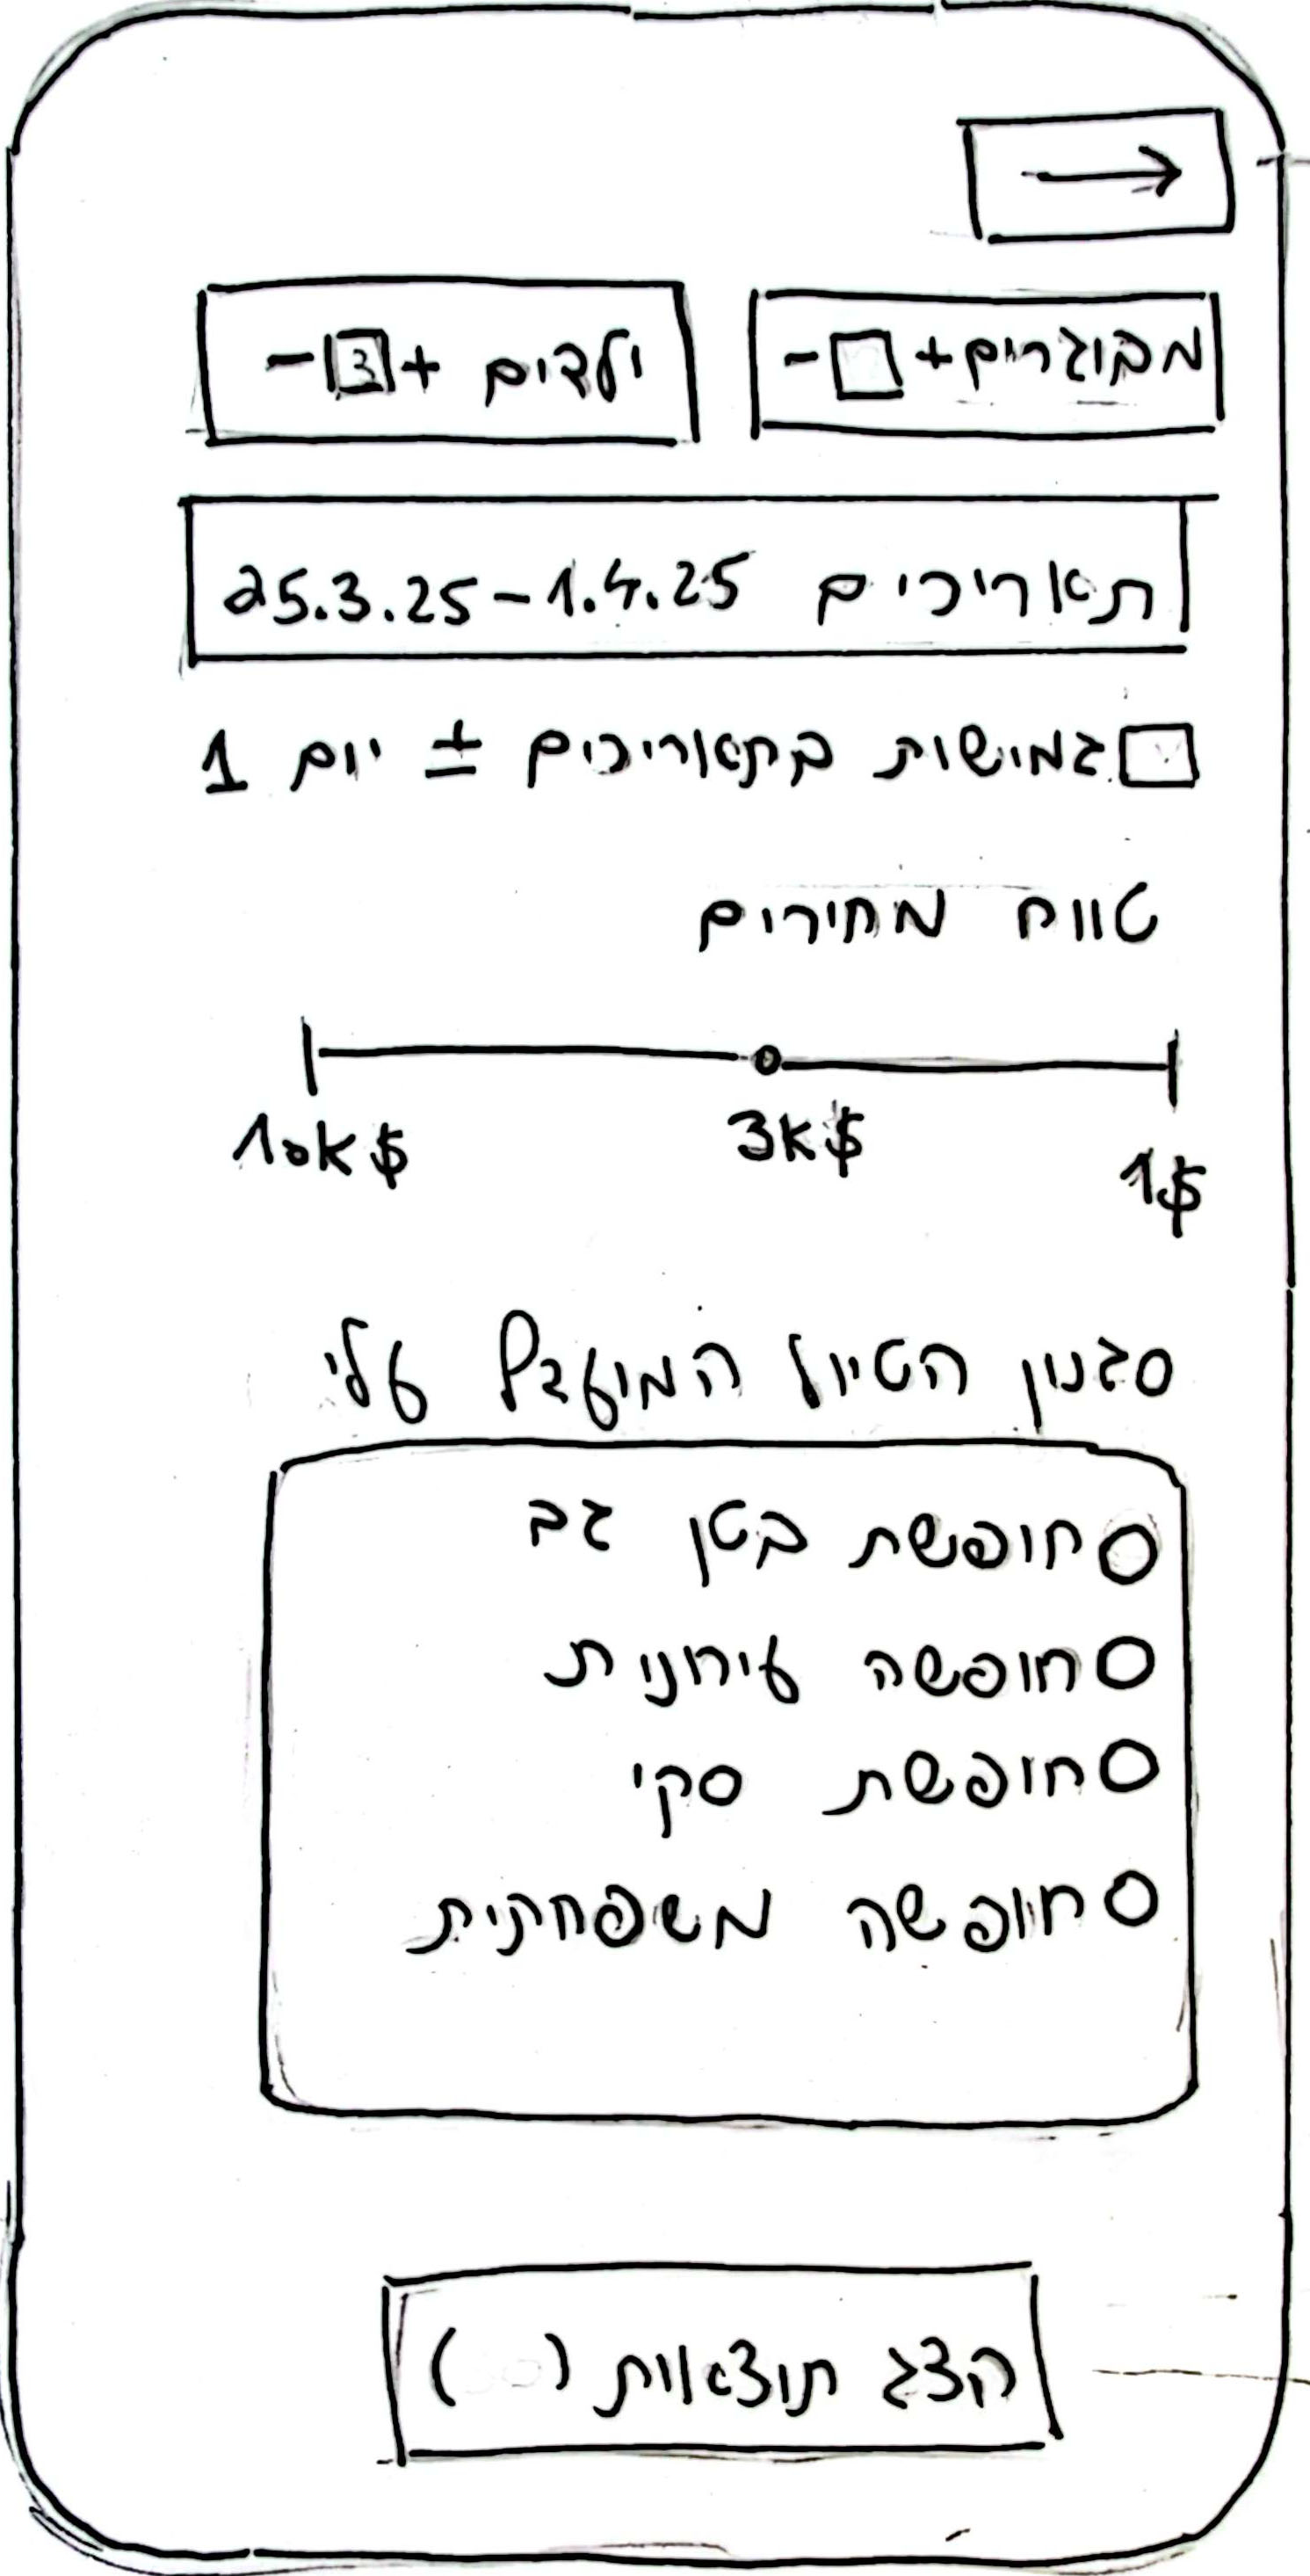 מבוגרים + -
ילדים + 3 -
תאריכים 25.3.25-1.4.25
גמישות בתאריכים ± יום 1
טווח מחירים
1$
3K$
10K$
סגנון הטיול המועדף עלי
חופשת בטן גב
חופשה עירונית
חופשת סקי
חופשה משפחתית
הצג תוצאות ( )